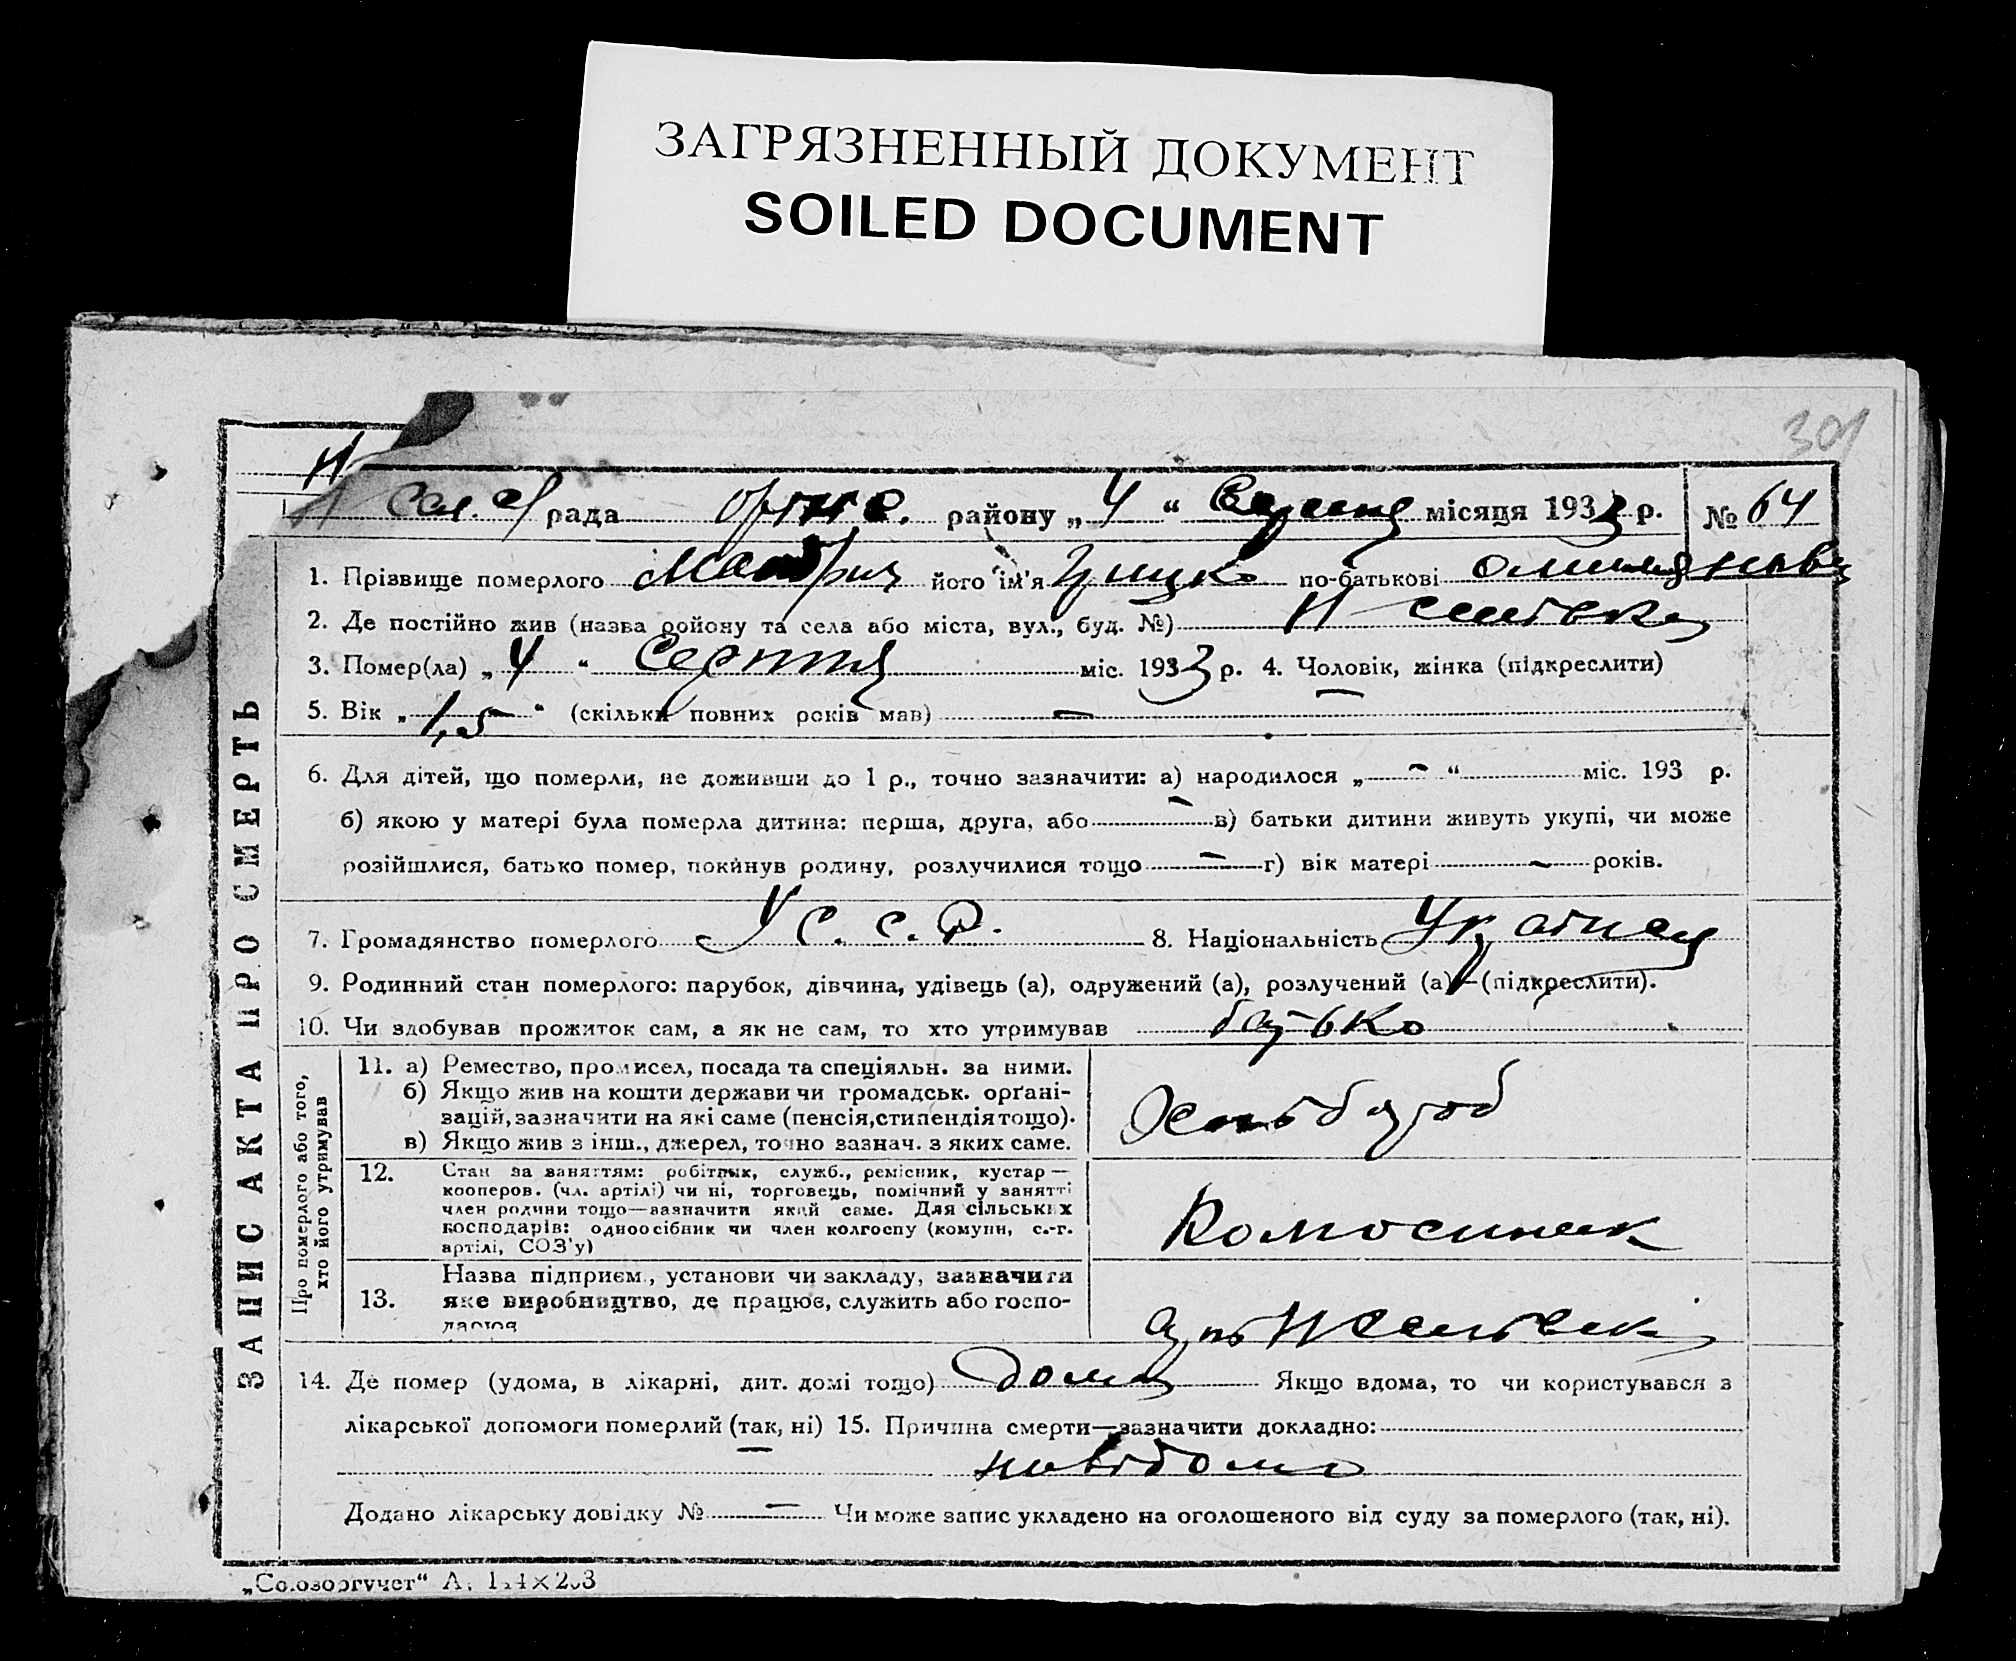 ЗАГРЯЗНЕННЫЙ ДОКУМЕНТ
SOILED DOCUMENT
301
Н
рада район у „4“ Серпня місяця 1933 р. № 64
ЗАПИС АКТА ПРО СМЕРТЬ
1. Прізвище померлого його ім'я Грицко по-батькові
2. Де постійно жив (назва ройону та села або міста, вул., буд. №) Н
3. Помер(ла) „4“ Серпня міс. 1933 р. 4. Чоловік, жінка (підкреслити)
5. Вік „1,5“ (скільки повних років мав) —
6. Для дітей, що померли, не доживши до 1 р., точно зазначити: а) народилося „—“ міс. 193 р.
б) якою у матері була померла дитина: перша, друга, або — в) батьки дитини живуть укупі, чи може
розійшлися, батько помер, покинув родину, розлучилися тощо — г) вік матері — років.
7. Громадянство померлого У С. С. Р. 8. Національність
9. Родинний стан померлого: парубок, дівчина, удівець (а), одружений (а), розлучений (а) — (підкреслити).
10. Чи здобував прожиток сам, а як не сам, то хто утримував батько
Про померлого або того, хто його утримував
11. а) Ремество, промисел, посада та спеціяльн. за ними.
б) Якщо жив на кошти держави чи громадськ. орґані-
зацій, зазначити на які саме (пенсія, стипендія тощо).
в) Якщо жив з інш., джерел, точно зазнач. з яких саме.
Хлібороб
12. Стан за заняттям: робітник, служб., ремісник, кустар —
кооперов. (чл. артілі) чи ні, торговець, помічний у занятті
член родини тощо—зазначити який саме. Для сільських
господарів: одноосібник чи член колгоспу (комуни, с.-г.
артілі, СОЗ'у)
13. Назва підприєм., установи чи закладу, зазначити
яке виробництво, де працює, служить або госпо-
дарює
14. Де помер (удома, в лікарні, дит. домі тощо) дома Якщо вдома, то чи користувався з
лікарської допомоги померлий (так, ні) 15. Причина смерти—зазначити докладно:
невідомо
Додано лікарську довідку № — Чи може запис укладено на оголошеного від суду за померлого (так, ні).
„Союзоргучет“